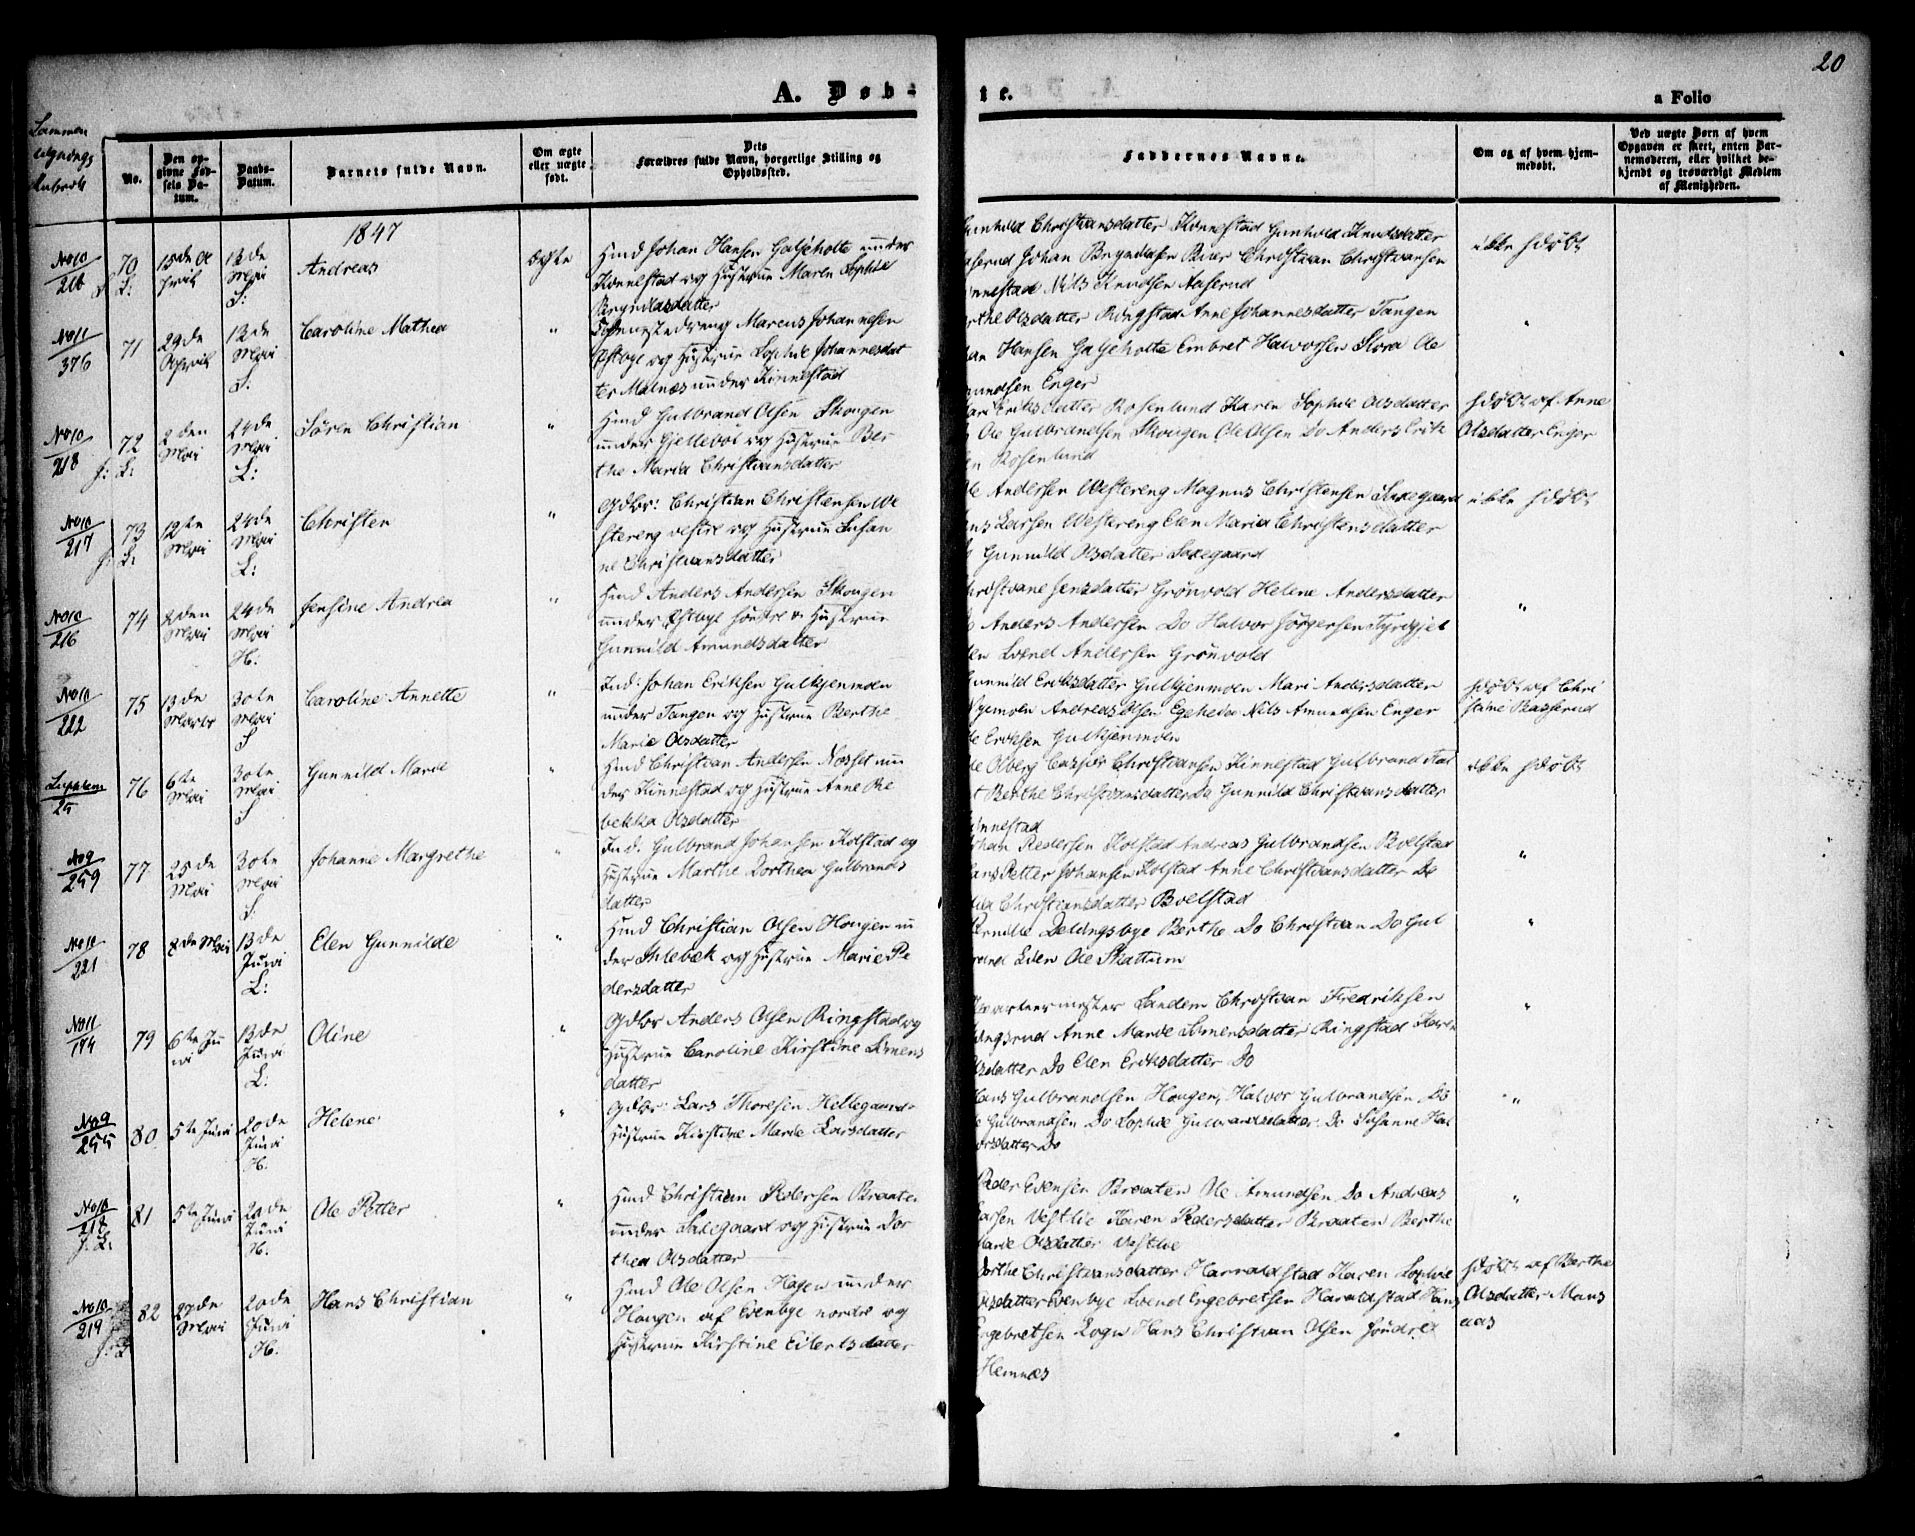 20
A. Døb-
te.
a Folio
Sammen
No.
Den op-
givne Fød-
sels Da-
tum.
Daabs-
Datum.
Barnets fulde Navn.
Om ægte
eller uægte
født.
Dets
Forældres fulde Navn, borgerlige Stilling og
Opholdssted.
Faddernes Navne.
Om og af hvem hjem-
medøbt.
Ved uægte Børn af hvem
Opgaven er skeet, enten Bar-
nemoderen, eller hvilket be-
kjendt og troværdigt Medlem
af Menigheden.
1847
No 10
216
70
13de
Mai
Andreas
ægte
Huusmd Johan Hansen Galjeholte under
Kinnestad og Hustrue Maren Sophie
Bryndilsdatter
Gunhild Christiansdatter Kinnestad Gunhild Knudsdatter
Christian Christiansen
Nils Knudsen Aaserud
ikke hjdøbt
No 11
376
71
29de
April
13de
Mai
Caroline Mathea
"
Marcus Johannesen
Østbye og Hustrue Sophie Johannesdat
ter Malnæs under Kinnestad
Olsdatter Ringstad Anne Johannesdatter Tangen
Hansen Galjeholte Embret Halvorsen Slora Ole
Enger
"
No 10
218
72
2den
Mai
24de
Mai
L:
Søren Christian
"
Gulbrand Olsen Skougen
under Gjellebøl og Hustrue Ber
the Maria Christiansdatter
Eriksdatter Rosenlund Karen Sophie Olsdatter
Ole Gulbrandsen Skougen Ole Olsen Do Anders Erik
Rosenlund
hjdøbt af Anne
Olsdatter Enger
No 10
217
73
12te
Mai
24de
Mai
L:
Christen
"
Gdbr: Christian Christensen We
stereng vestre og Hustrue Susan
ne Christiansdatter
Andersen Westereng Magnus Christensen Sodegaard
Larsen Westereng Elen Maria Christensdatter
Gunnild Olsdatter Sodegaard
ikke hjdøbt
No 10
216
74
2den
Mai
24de
Mai
H:
Jensine Andrea
"
Anders Andersen Skougen
under Østbye søndre og Hustrue
Gunnild Amundsdatter
Jensdatter Grønvold Helene Andersdatter
Anders Andersen Do Halvor Jørgensen
Svend Andersen Grønvold
"
No 10
222
75
13de
Marts
30te
Mai
Caroline Annette
"
Ind: Johan Eriksen Gulkjenmoen
under Tangen og Hustrue Berthe
Marie Olsdatter
Gunnild Eriksdatter Gulkjenmoen Mari Andersdatter
Andreas Olsen Egeheia Nils Amundsen Enger
Eriksen Gulkjenmoen
hjdøbt af Chri
stine Basserud
25
76
6te
Mai
30te
Mai
Gunnild Marie
"
Christian Andersen Næsset un
der Kinnestad og Hustrue Anne Re
bekka Olsdatter
Olberg Casper Christiansen Kinnestad Gulbrand
Berthe Christiansdatter Do Gunnild Christiansdatter
Kinnestad
ikke hjdøbt
No 9
259
77
25de
Mai
30te
Mai
Johanne Margrethe
"
Ind: Gulbrand Johansen Kolstad og
Hustrue Marthe Dorthea Gulbrands
datter
Johan Pedersen Kolstad Andreas Gulbrandsen Boelstad
Hans Petter Johansen Kolstad Anne Christiansdatter Do
Christiansdatter Boelstad
"
No 10
221
78
2de Mai
13de
Juni
L:
Elen Gunnilde
"
Christian Olsen Hougen un
der Ihlebæk og Hustrue Marie Pe
dersdatter
Pernille Delingsbye Berthe Do Christian Do Gul
brand Lien Ole Skattum
"
No 11
174
79
6te Ju
ni
13de
Juni
L:
Oline
"
Gdbr Anders Olsen Ringstad og
Hustrue Caroline Kirstine Simens
datter
Qvarteermester Sandem Christian Fredriksen
Anne Marie Simensdatter Ringstad Karen
Olsdatter Do Elen Eriksdatter Do
"
No 9
255
80
5te Juni
20de
Juni
H:
Helene
"
Gdbr: Lars Thoresen Hellegaard
Hustrue Kirstine Marie Larsdatter
Hans Gulbrandsen Hougen, Halvor Gulbrandsen Do
Gulbrandsen Do Sophie Gulbrandsdatter Do Susanne Hal
vorsdatter Do
"
No 10
218
81
5te Juni
20de
Juni
H:
Ole Petter
"
Christian Pedersen Braaten
under Sodegaard og Hustrue Dor
thea Olsdatter
Peder Evensen Braaten Ole Amundsen Do Andreas
Larsen Vestlie Karen Pedersdatter Braaten Berthe
Marie Olsdatter Vestlie
"
No 10
219
82
27de
Mai
20de
Juni
H:
Hans Christian
"
Ole Olsen Hagen under
Hougen af Evenbye nordre og
Hustrue Kirstine Eilertsdatter
Dorthe Christiansdatter Harraldstad Karen Sophie
Olsdatter Evenbye Svend Engebretsen Haraldstad Hans
Engebretsen Sogn Hans Christian Olsen søndre
Hemnæs
hjdøbt af Berthe
Olsdatter Mans
aas